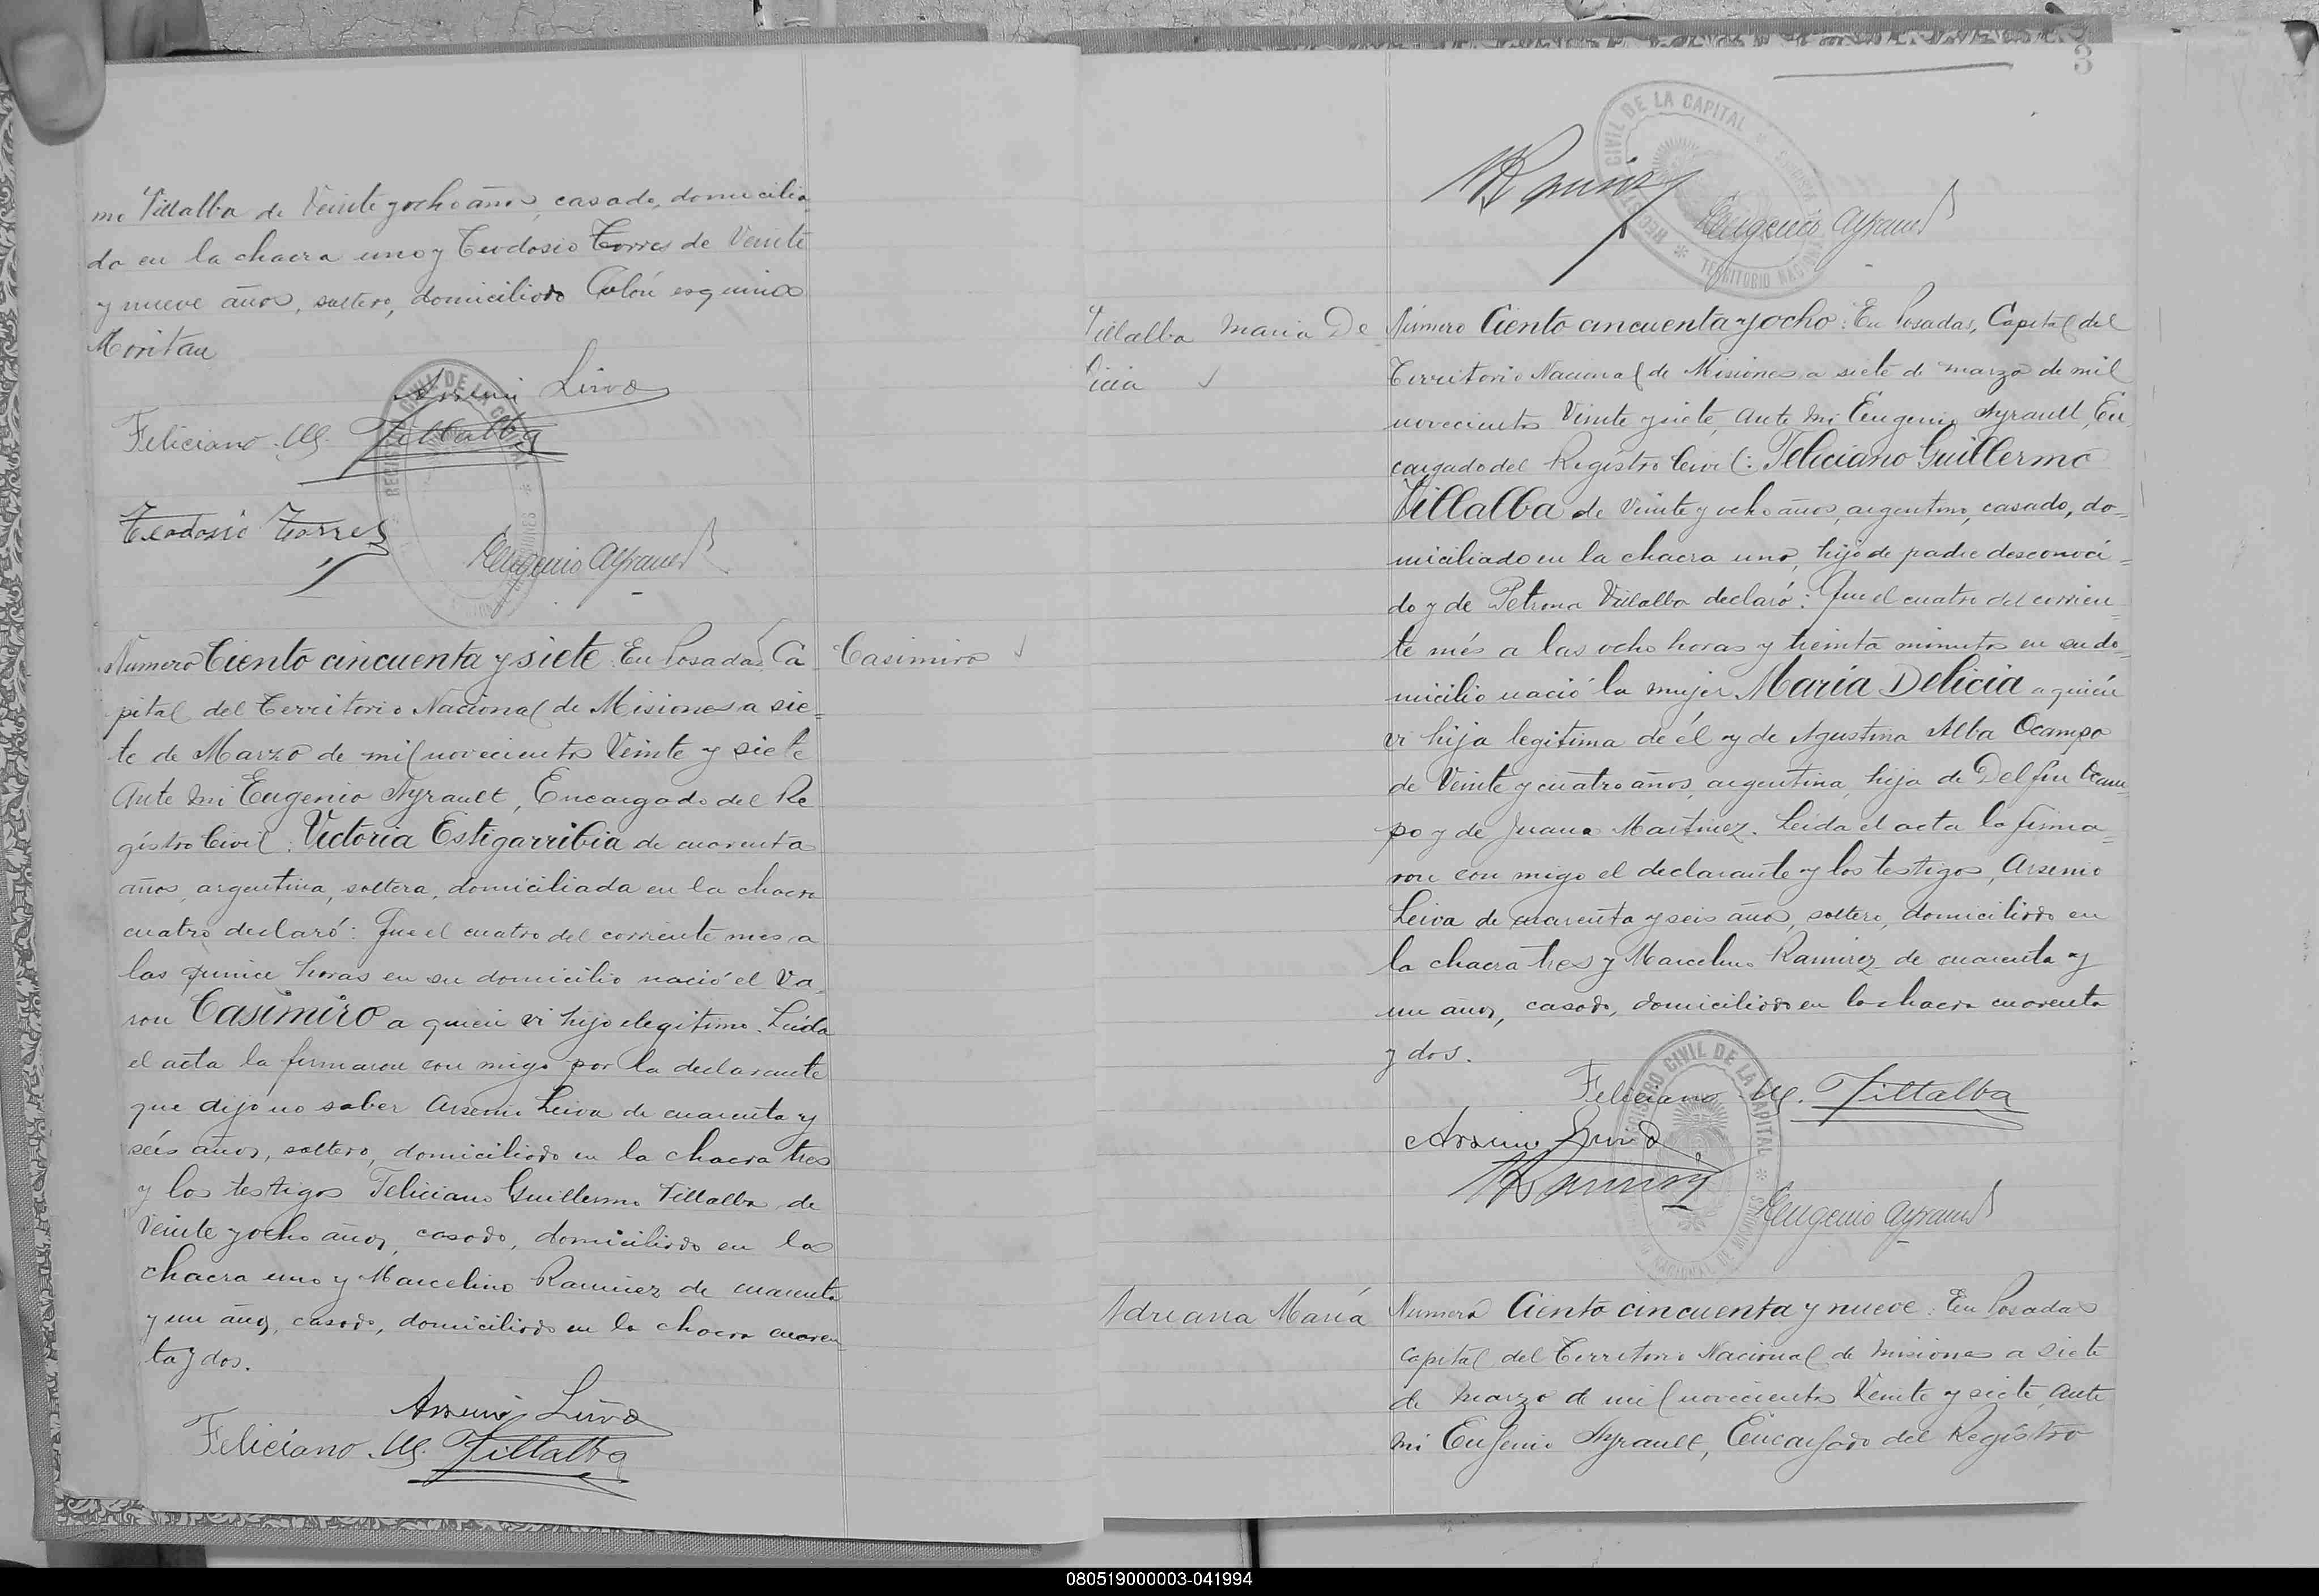 mo Villalba de Veinte y ocho años, casado, domicilia
do en la chacra uno y Teodosio Torres de Veinte
y nueve años, soltero, domiciliado Colón esquina
Moritan
Arsenio Leiva
Feliciano G. Villalba
Teodosio Torres
Eugenio Ayrault
Número Ciento cincuenta y siete: En Posadas, Ca
Casimiro
pital del Territorio Nacional de Misiones a sie=
te de Marzo de mil novecientos Veinte y siete
Ante mi Eugenio Ayrault, Encargado del Re
gistro Civil: Victoria Estigarribia de cuarenta
años, argentina, soltera, domiciliada en la chacra
cuatro declaró: Que el cuatro del corriente mes a
las quince horas en su domicilio nació el va
ron Casimiro a quien vi hijo ilegitimo. Leida
el acta la firmaron con migo por la declarante
que dijo no saber Arsenio Leiva de cuarenta y
seis años, soltero, domiciliado en la chacra tres
y los testigos Feliciano Guillermo Villalba de
Veinte y ocho años, casado, domiciliado en la
chacra uno y Marcelino Ramirez de cuarenta
y un años, casado, domiciliado en la chacra cuaren
ta y dos.
Arsenio Leiva
Feliciano G. Villalba
3
REGISTRO CIVIL DE LA CAPITAL
TERRITORIO NACIONAL
M Ramirez
Eugenio Ayrault
Villalba Maria De
licia
Número Ciento cincuenta y ocho: En Posadas, Capital del
Territorio Nacional de Misiones a siete de marzo de mil
novecientos Veinte y siete, ante mi Eugenio Ayrault, En
cargado del Registro Civil: Feliciano Guillermo
Villalba de Veinte y ocho años, argentino, casado, do=
miciliado en la chacra uno, hijo de padre desconoci=
do y de Petrona Villalba declaró: Que el cuatro del corrien=
te més a las ocho horas y treinta minutos en su do=
micilio nació la mujer María Delicia a quién
vi hija legitima de él y de Agustina Alba Ocampo
de Veinte y cuatro años, argentina, hija de Delfin Ocam
po y de Juana Martinez. Leida el acta la firma=
ron con migo el declarante y los testigos, Arsenio
Leiva de cuarenta y seis años, soltero, domiciliado en
la chacra tres y Marcelino Ramirez de cuarenta y
un años, casado, domiciliado en la chacra cuarenta
y dos.
Feliciano G. Villalba
Arsenio Leiva
M Ramirez
Eugenio Ayrault
Adriana María
Número Ciento cincuenta y nueve: En Posadas
Capital del Territorio Nacional de Misiones a siete
de Marzo de mil novecientos Veinte y siete, ante
mi Eugenio Ayrault, Encargado del Registro
080519000003-041994